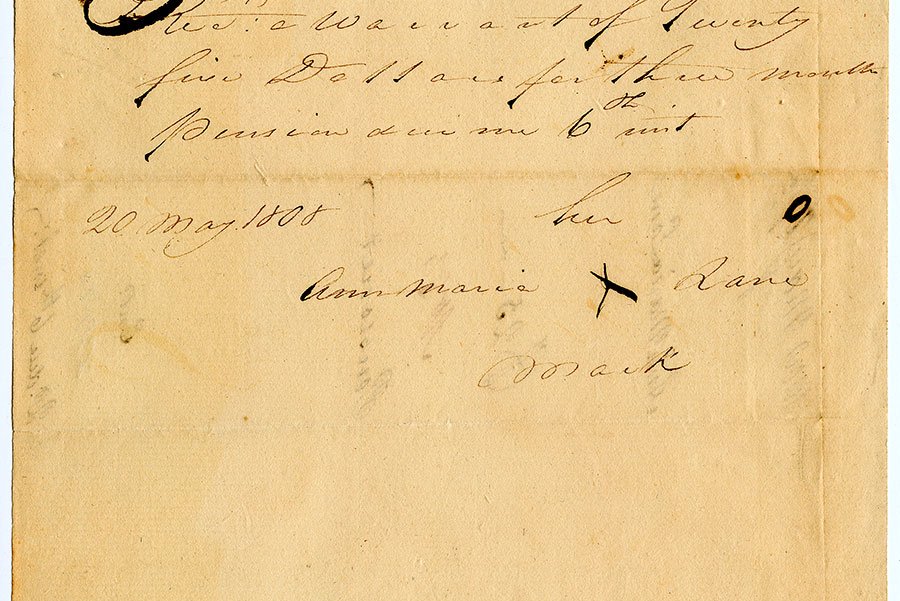 Rec: a Warrant of Twenty
five Dollars for three months
Pension due me 6th inst
20 May. 1808 her
Ann Maria X Lane
Mark